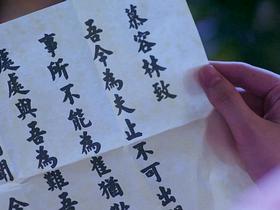 慕容林致
吾令為夫止不可出
事所不能為崔猶
處處與吾為難吾